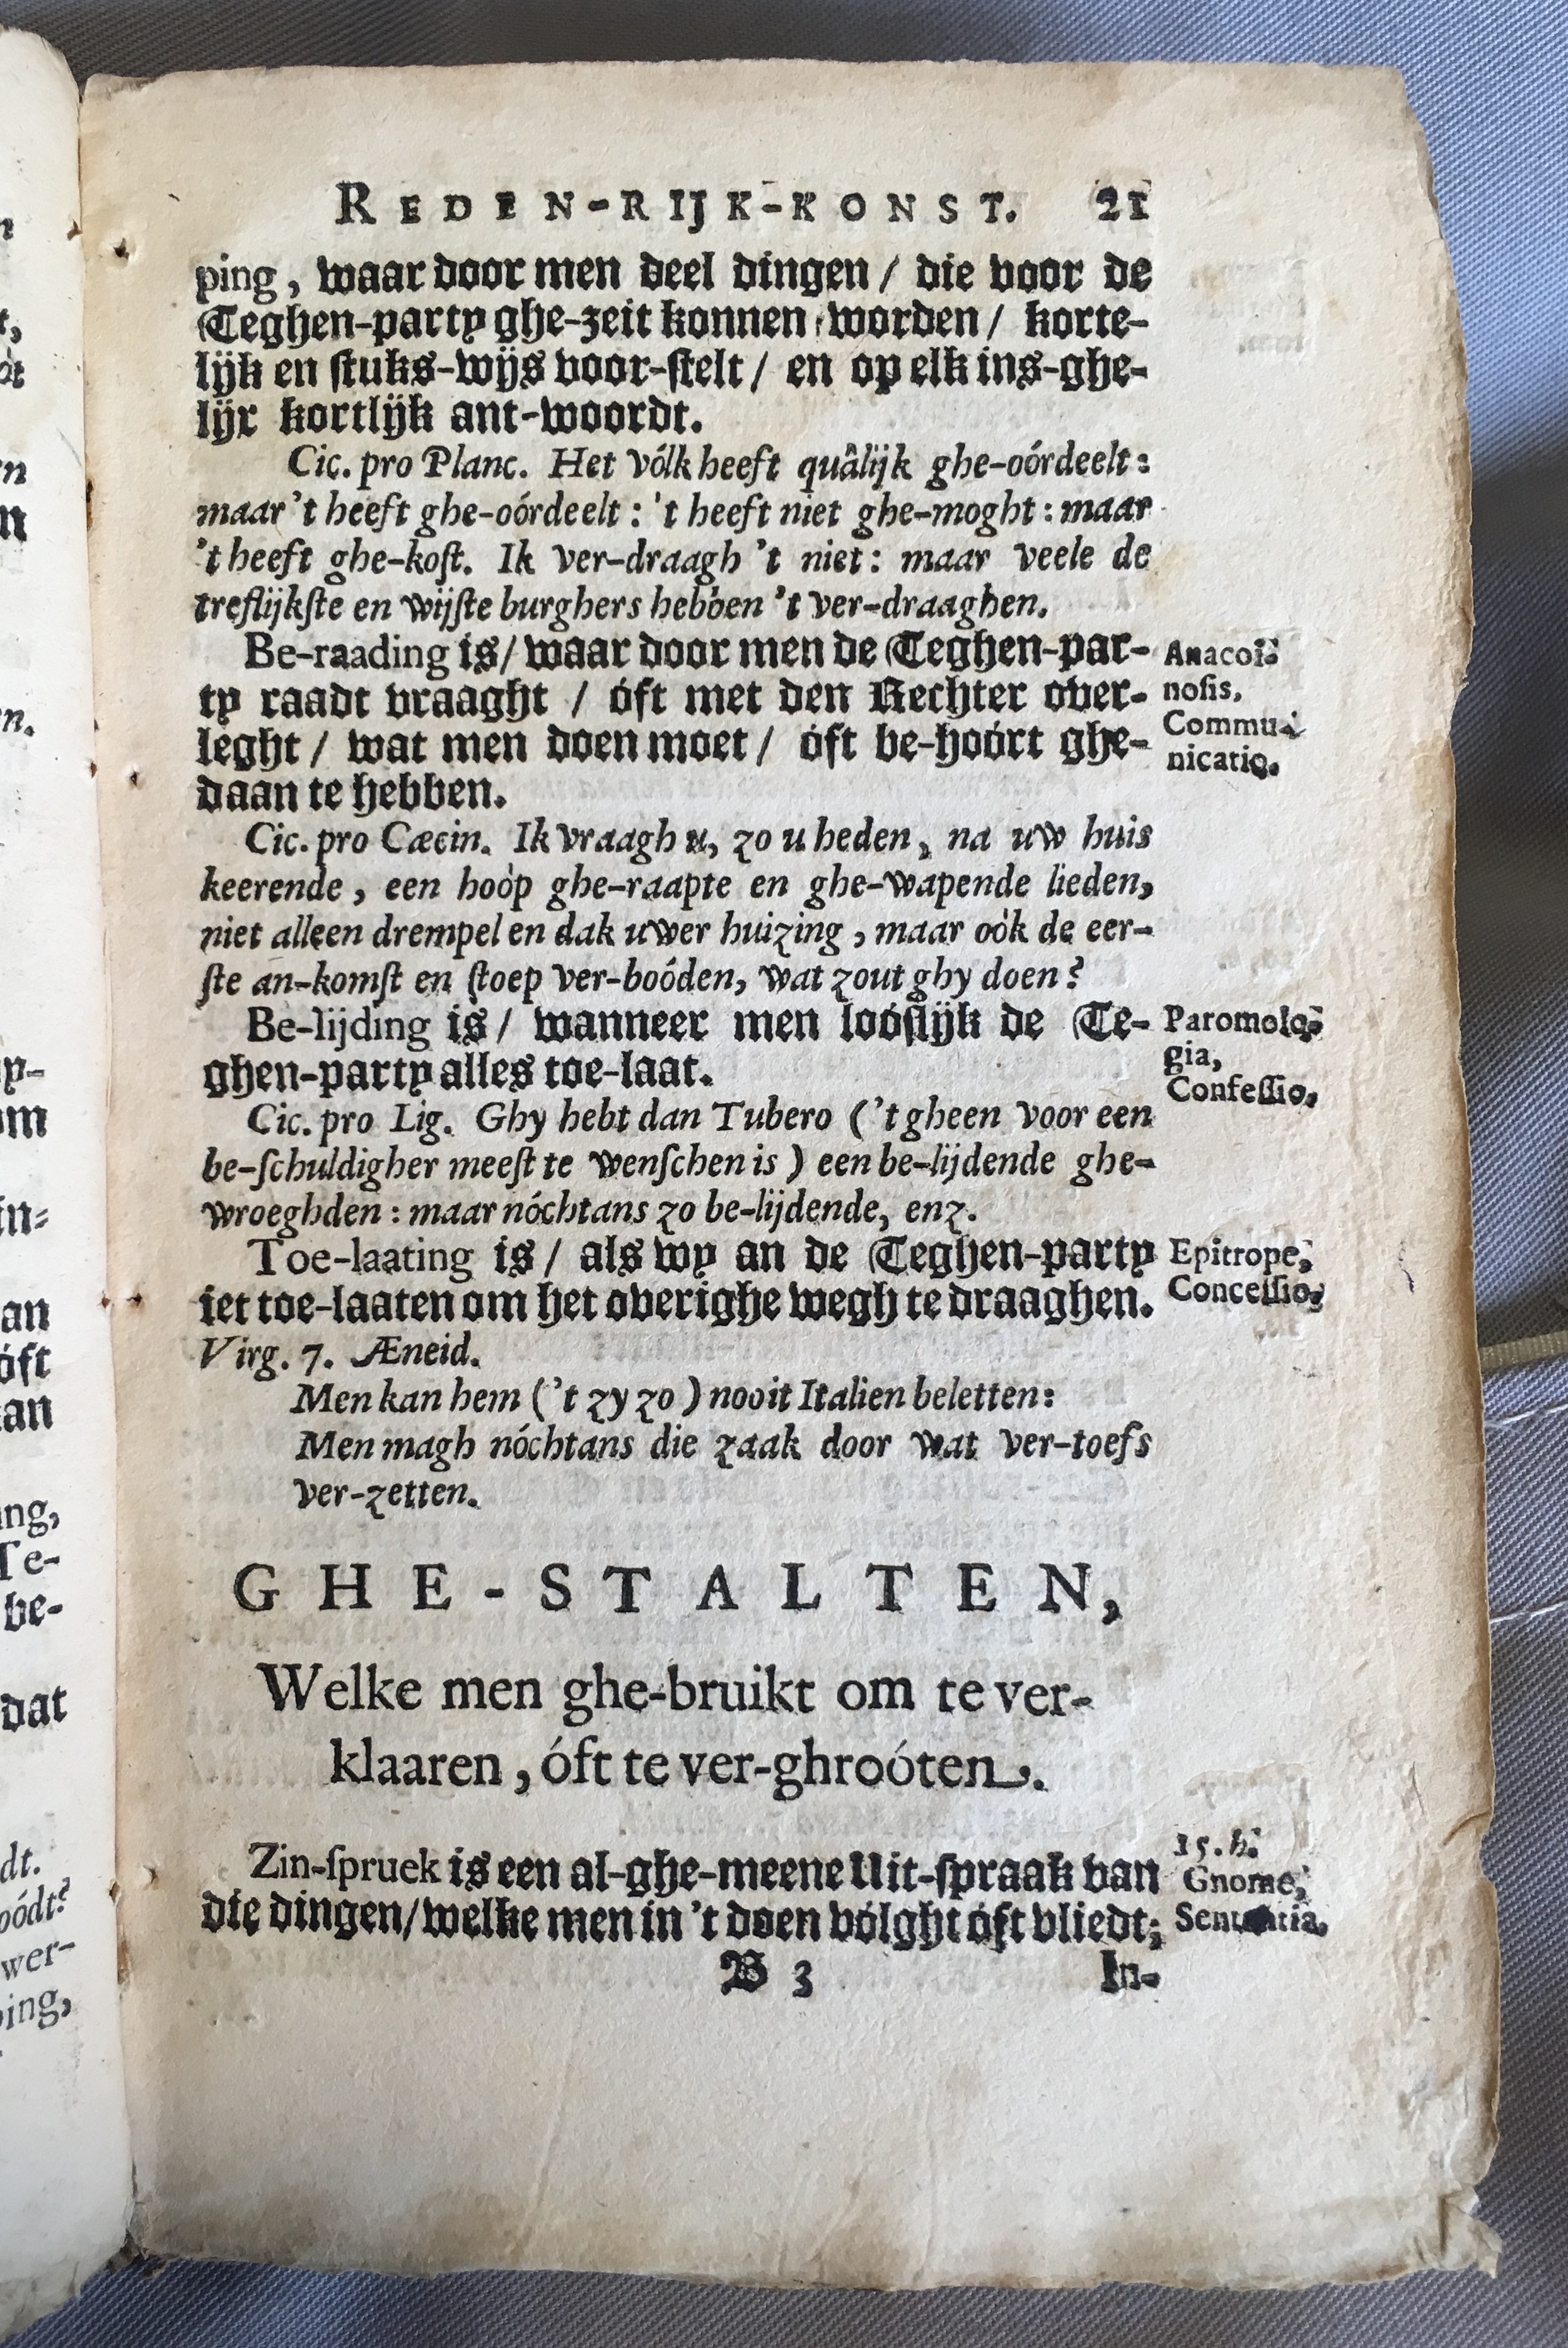 REDEN-RIJK-KONST. 21
ping, waar door men veel dingen / die voor de
Teghen-party ghe-zeit konnen worden / korte-
lijk en ſtuks-wijs voor-ſtelt / en op elk ins-ghe-
lijx kortlijk ant-woordt.
Cic. pro Planc. Het vólk heeft quâlijk ghe-oórdeelt:
maar 't heeft ghe-oórdeelt: 't heeft niet ghe-moght: maar
't heeft ghe-koſt. Ik ver-draagh 't niet: maar veele de
treflijkſte en wijſte burghers hebben 't ver-draaghen.
Be-raading is / waar door men de Teghen-par-
ty raadt vraaght / óft met den Rechter over-
leght / wat men doen moet / óft be-hoórt ghe-
daan te hebben.
Anacoi-
noſis,
Commu-
nicatio.
Cic. pro Cæcin. Ik vraagh u, zo u heden, na uw huis
keerende, een hoòp ghe-raapte en ghe-wapende lieden,
niet alleen drempel en dak uwer huizing, maar oòk de eer-
ſte an-komſt en ſtoep ver-boóden, wat zout ghy doen?
Be-lijding is / wanneer men loóſlijk de Te-
ghen-party alles toe-laat.
Paromolo-
gia,
Confeſſio.
Cic. pro Lig. Ghy hebt dan Tubero ('t gheen voor een
be-ſchuldigher meeſt te wenſchen is) een be-lijdende ghe-
wroeghden: maar nóchtans zo be-lijdende, enz.
Toe-laating is / als wy an de Teghen-party
iet toe-laaten om het overighe wegh te draaghen.
Epitrope,
Conceſſio.
Virg. 7. Æneid.
Men kan hem ('t zy zo) nooit Italien beletten:
Men magh nóchtans die zaak door wat ver-toefs
ver-zetten.
GHE-STALTEN,
Welke men ghe-bruikt om te ver-
klaaren, óft te ver-ghroóten.
Zin-ſpruek is een al-ghe-meene Uit-ſpraak van
die dingen / welke men in 't doen vólght óft vliedt;
15. h.
Gnome,
Sententia.
B 3 In-